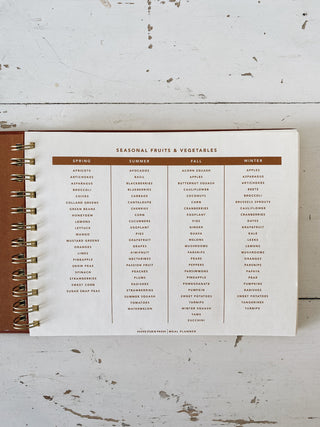 SEASONAL FRUITS & VEGETABLES
SPRING
APRICOTS
ARTICHOKES
ASPARAGUS
BROCCOLI
CHIVES
COLLARD GREENS
GREEN BEANS
HONEYDEW
LEMONS
LETTUCE
MANGO
MUSTARD GREENS
ORANGES
LIMES
PINEAPPLE
SNOW PEAS
SPINACH
STRAWBERRIES
SWEET CORN
SUGAR SNAP PEAS
SUMMER
AVOCADOS
BASIL
BLACKBERRIES
BLUEBERRIES
CARROTS
CANTALOUPE
CHERRIES
CORN
CUCUMBERS
EGGPLANT
FIGS
GRAPEFRUIT
GRAPES
KIWIFRUIT
NECTARINES
PASSION FRUIT
PEACHES
PLUMS
RADISHES
STRAWBERRIES
SUMMER SQUASH
TOMATOES
WATERMELON
FALL
ACORN SQUASH
APPLES
BUTTERNUT SQUASH
CAULIFLOWER
COCONUTS
CORN
CRANBERRIES
EGGPLANT
FIGS
GINGER
GUAVA
MELONS
MUSHROOMS
PARSNIPS
PEARS
PEPPERS
PERSIMMONS
PINEAPPLE
POMEGRANATE
PUMPKIN
SWEET POTATOES
TURNIPS
WINTER SQUASH
YAMS
ZUCCHINI
WINTER
APPLES
ASPARAGUS
ARTICHOKES
BEETS
BRUSSELS SPROUTS
CAULIFLOWER
CRANBERRIES
DATES
GRAPEFRUIT
KALE
LEEKS
LEMONS
MUSHROOMS
ORANGES
PARSNIPS
PAPAYA
PEAS
PUMPKINS
RADISHES
SWEET POTATOES
TANGERINES
TURNIPS
MEAL PLANNER